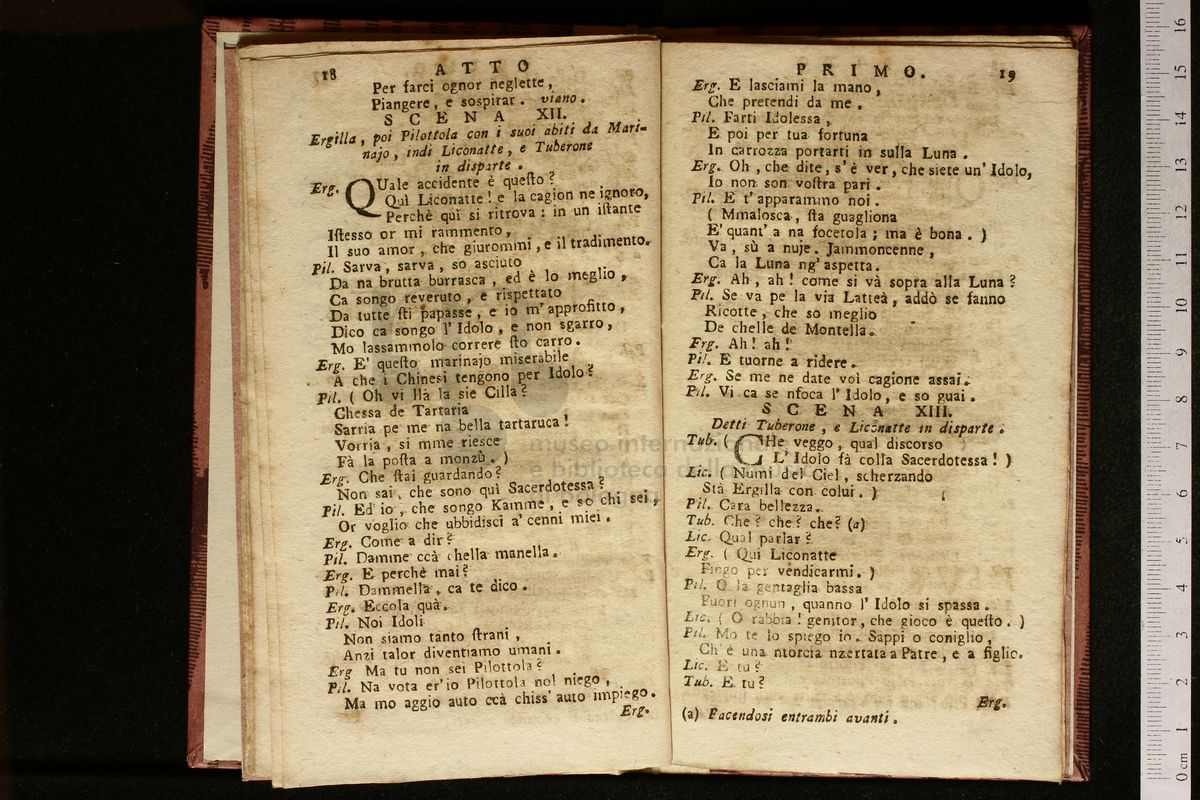 18 ATTO
Per farci ognor neglette,
Piangere, e sospirar. viano.
SCENA XII.
Ergilla, poi Pilottola con i suoi abiti da Mari-
najo, indi Liconatte, e Tuberone
in disparte.
Erg. QUale accidente è questo?
Quì Liconatte! e la cagion ne ignoro,
Perchè quì si ritrova: in un istante
Istesso or mi rammento,
Il suo amor, che giurommi, e il tradimento.
Pil. Sarva, sarva, so asciuto
Da na brutta burrasca, ed è lo meglio,
Ca songo reveruto, e rispettato
Da tutte sti papasse, e io m'approfitto,
Dico ca songo l'Idolo, e non sgarro,
Mo lassammolo correre sto carro.
Erg. E' questo marinajo miserabile
A che i Chinesi tengono per Idolo?
Pil. ( Oh vi llà la sie Cilla?
Chessa de Tartaria
Sarria pe me na bella tartaruca!
Vorria, si mme riesce
Fà la posta a monzù. )
Erg. Che stai guardando?
Non sai, che sono quì Sacerdotessa?
Pil. Ed io, che songo Kamme, e so chi sei,
Or voglio che ubbidisci a' cenni miei.
Erg. Come a dir?
Pil. Damme ccà chella manella.
Erg. E perchè mai?
Pil. Dammella, ca te dico.
Erg. Eccola quà.
Pil. Noi Idoli
Non siamo tanto strani,
Anzi talor diventiamo umani.
Erg Ma tu non sei Pilottola?
Pil. Na vota er'io Pilottola nol niego,
Ma mo aggio auto ccà chiss'auto impiego.
Erg.
PRIMO. 19
Erg. E lasciami la mano,
Che pretendi da me.
Pil. Farti Idolessa,
E poi per tua fortuna
In carrozza portarti in sulla Luna.
Erg. Oh, che dite, s'è ver, che siete un'Idolo,
Io non son vostra pari.
Pil. E t'apparammo noi.
( Mmalosca, sta guagliona
E' quant'a na focetola; ma è bona. )
Va, sù a nuje. Jammoncenne,
Ca la Luna ng'aspetta.
Erg. Ah, ah! come si và sopra alla Luna?
Pil. Se va pe la via Latteà, addò se fanno
Ricotte, che so meglio
De chelle de Montella.
Erg. Ah! ah!
Pil. E tuorne a ridere.
Erg. Se me ne date voi cagione assai.
Pil. Vi ca se nfoca l'Idolo, e so guai.
SCENA XIII.
Detti Tuberone, e Liconatte in disparte.
Tub. ( CHe veggo, qual discorso
L'Idolo fà colla Sacerdotessa! )
Lic. ( Numi del Ciel, scherzando
Stà Ergilla con colui. )
Pil. Cara bellezza.
Tub. Che? che? che? (a)
Lic. Qual parlar?
Erg. ( Qui Liconatte
Fingo per vendicarmi. )
Pil. O la gentaglia bassa
Fuori ognun, quanno l'Idolo si spassa.
Lic. ( O rabbia! genitor, che gioco è questo. )
Pil. Mo te lo spiego io. Sappi o coniglio,
Ch'è una ntorcia nzertata a Patre, e a figlio.
Lic. E tu?
Tub. E tu?
Erg.
(a) Facendosi entrambi avanti.
museo internazionale
e biblioteca della